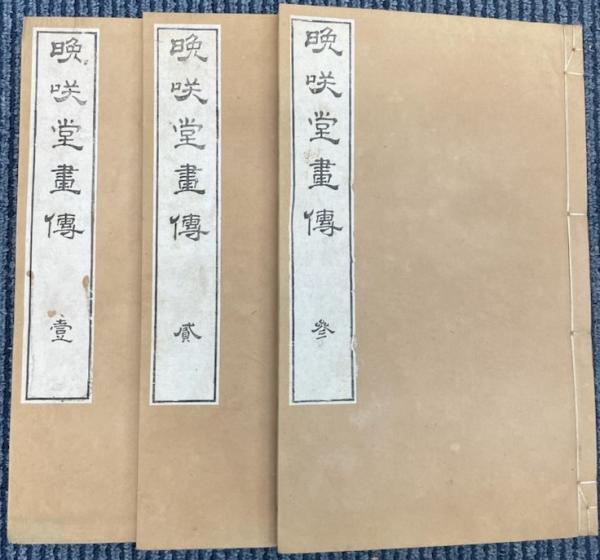 晩咲堂畫傳 壹
晩咲堂畫傳 貳
晩咲堂畫傳 叄